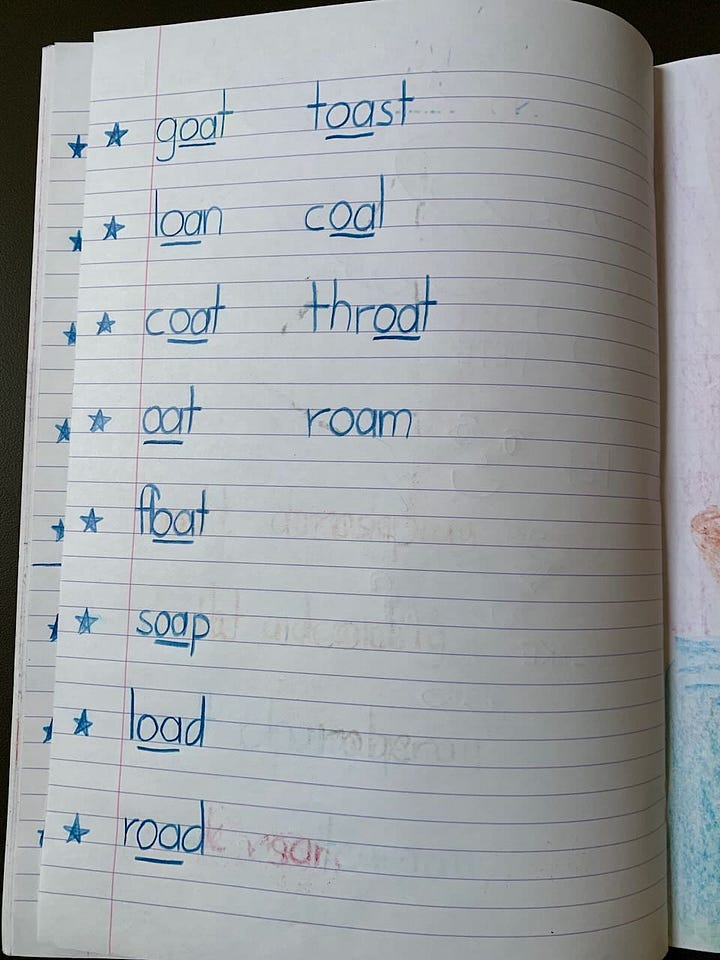 goat toast
loan coal
coat throat
oat roam
float
soap
load
road